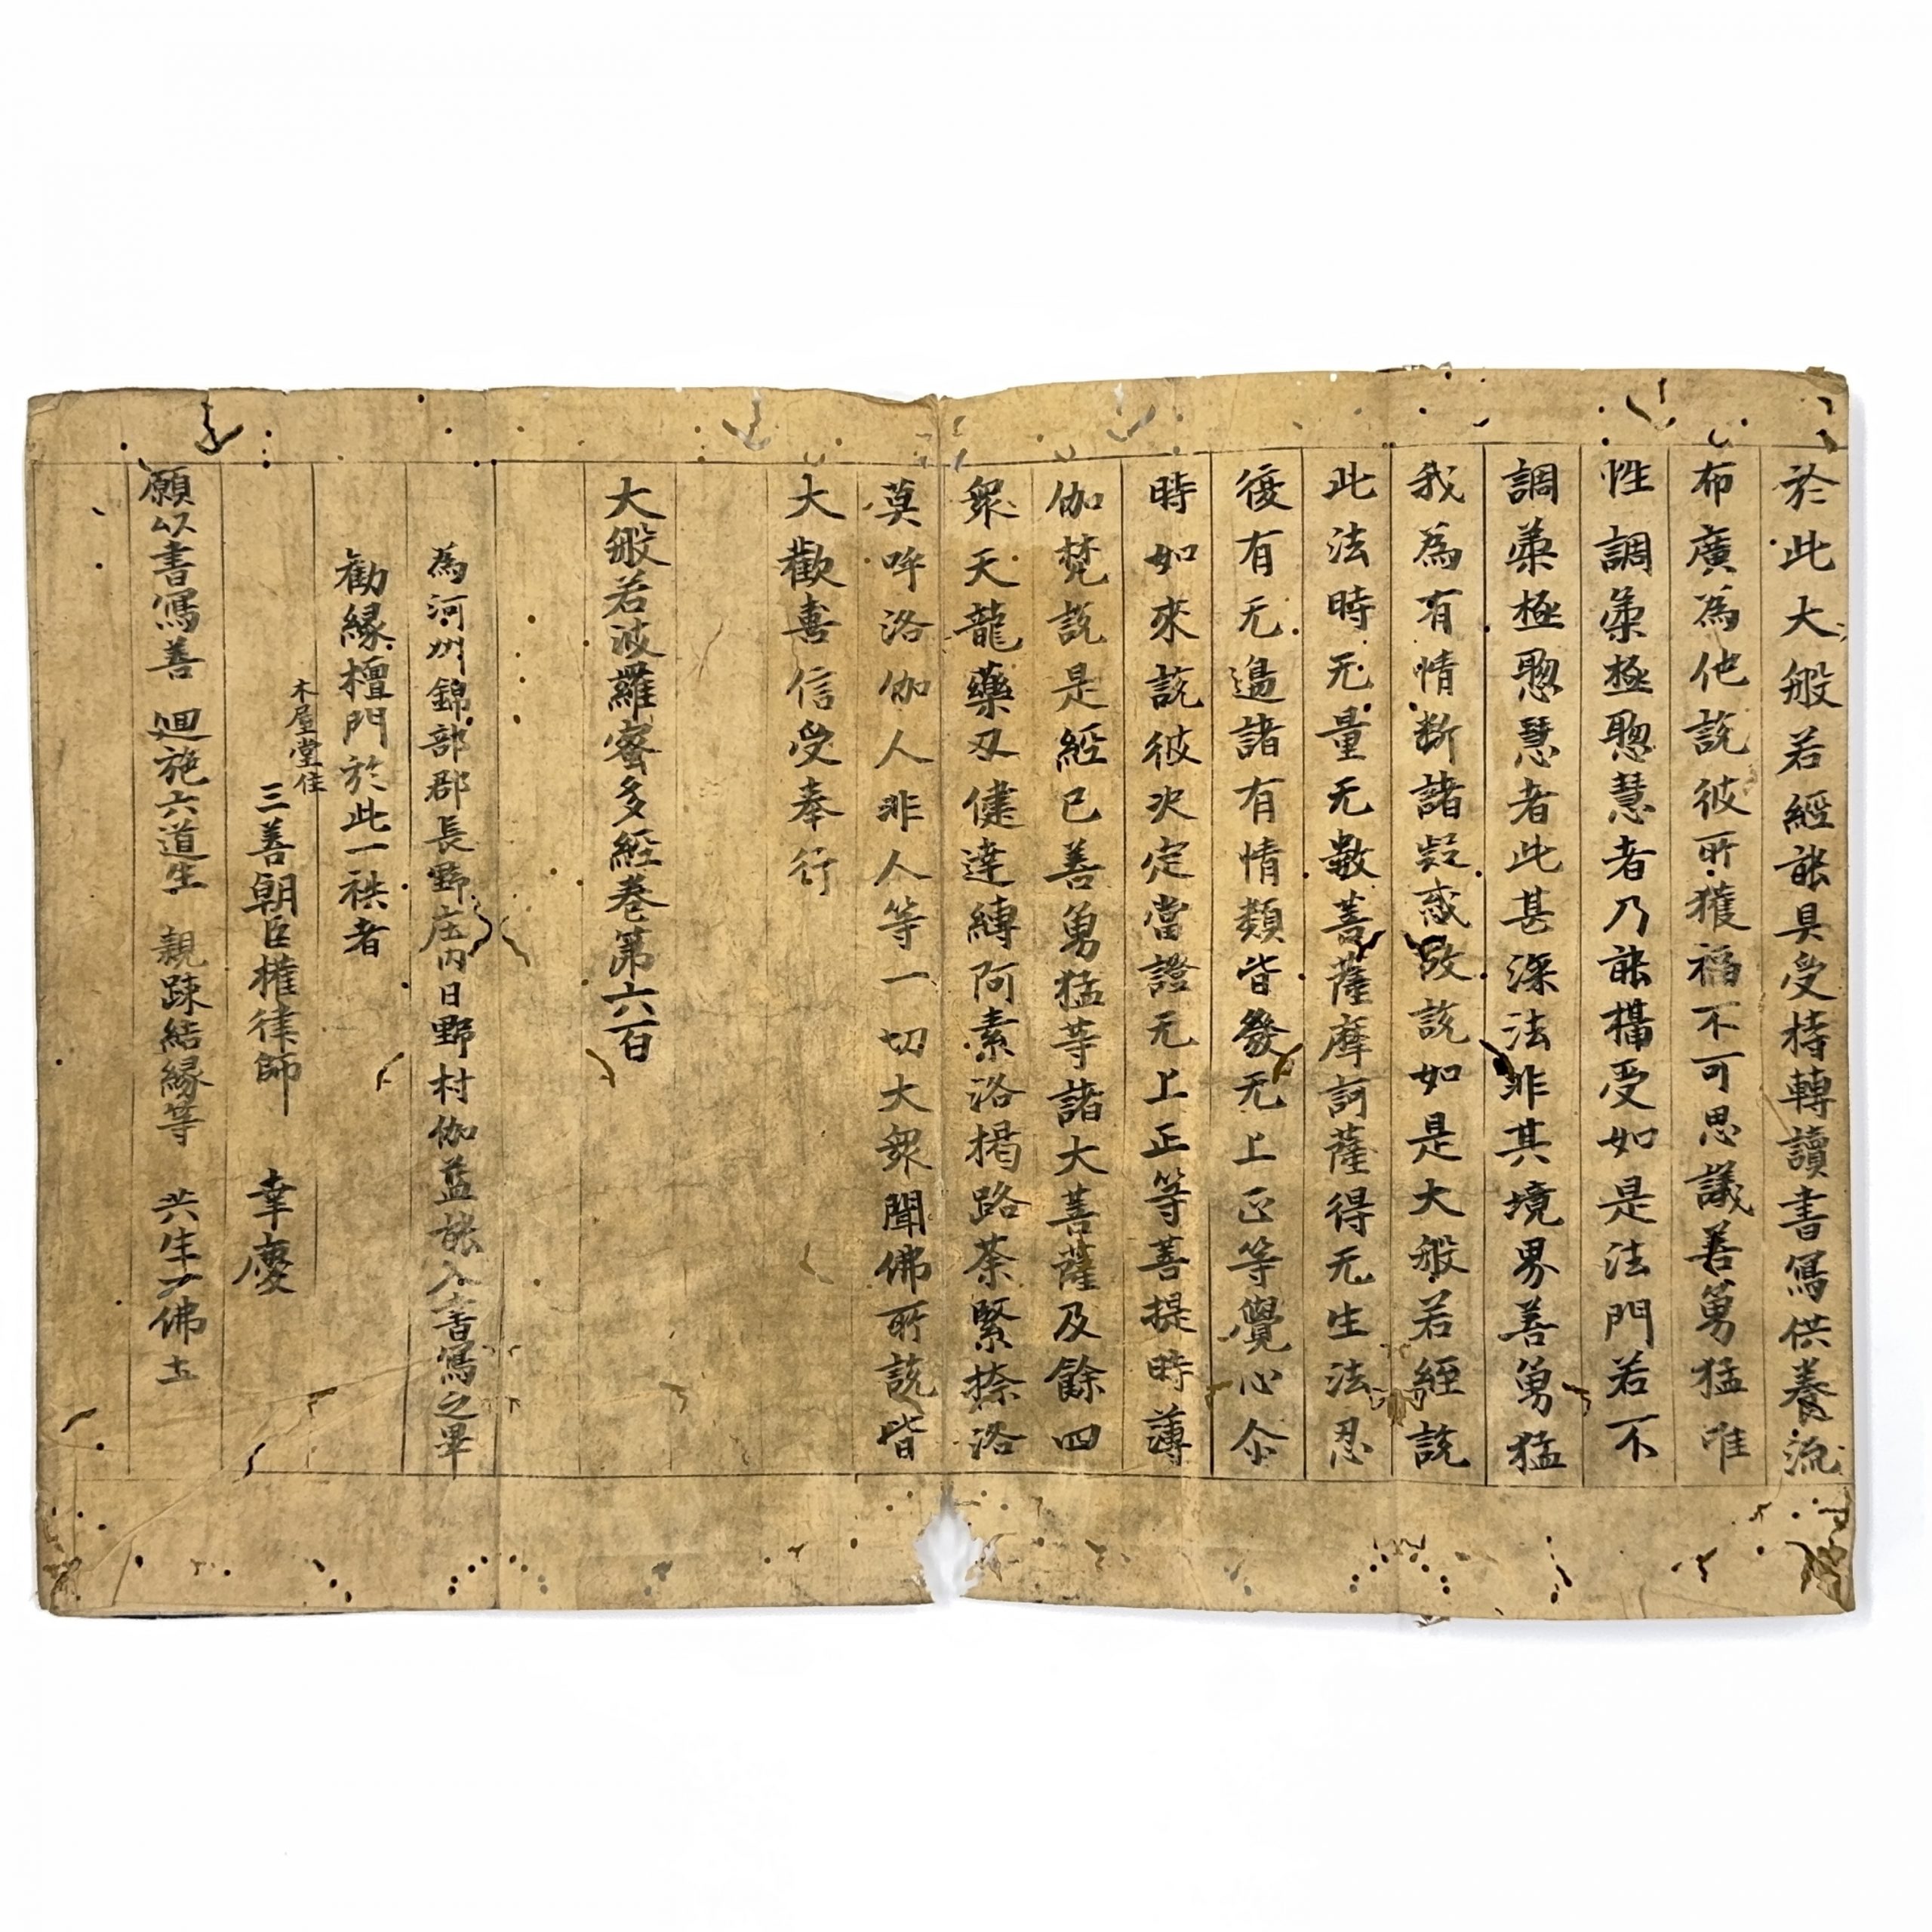 於此大般若經能具受持轉讀書寫供養流
布廣為他說彼所獲福不可思議善勇猛唯
性調柔極聰慧者乃能攝受如是法門若不
調柔極聰慧者此甚深法非其境界善勇猛
我為有情斷諸疑惑故說如是大般若經說
此法時无量无數菩薩摩訶薩得无生法忍
復有无邊諸有情類皆發无上正等覺心尒
時如來說彼决定當證无上正等菩提時薄
伽梵說是經已善勇猛等諸大菩薩及餘四
眾天龍藥叉健達縛阿素洛揭路荼緊捺洛
莫呼洛伽人非人等一切大眾聞佛所說皆
大歡喜信受奉行
大般若波羅蜜多經卷第六百
為河州錦部郡長野庄內日野村伽益 入書寫之畢
勸縁檀門於此一袟者
木屋堂住
三善朝臣權律師 幸慶
願以書寫善 廻施六道生 親踈結縁等 共生一佛土